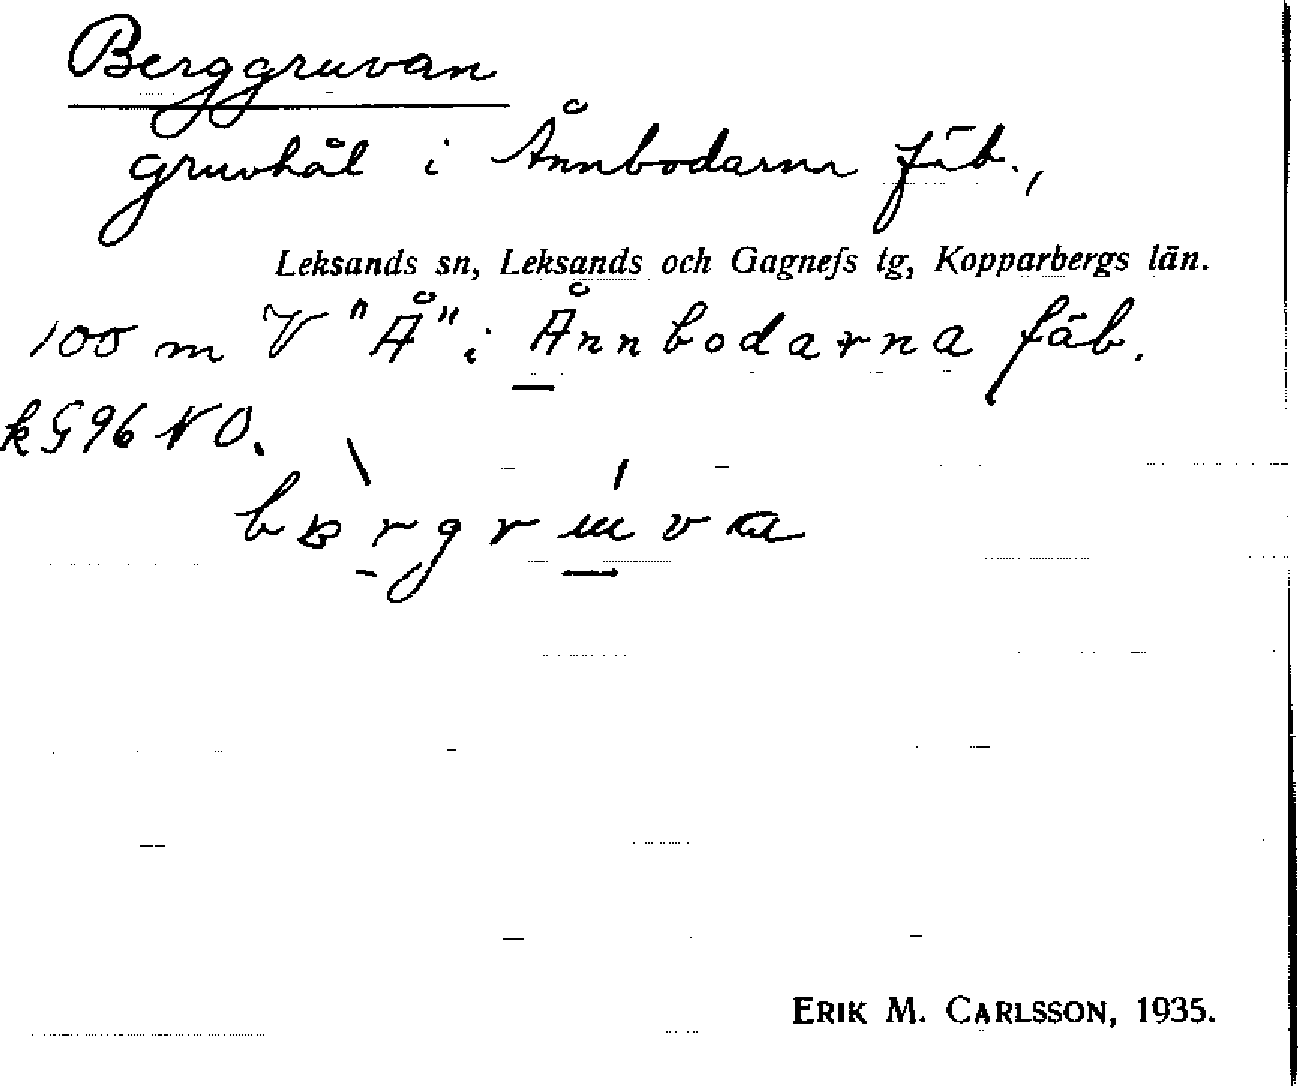 Berggruvan
gruvhål i Ånnbodarna fäb.,
Leksands sn, Leksands och Gagnefs tg, Kopparbergs län.
100 m V "Å" i Ånnbodarna fäb.
k G 96 NO.
ERIK M. CARLSSON, 1935.